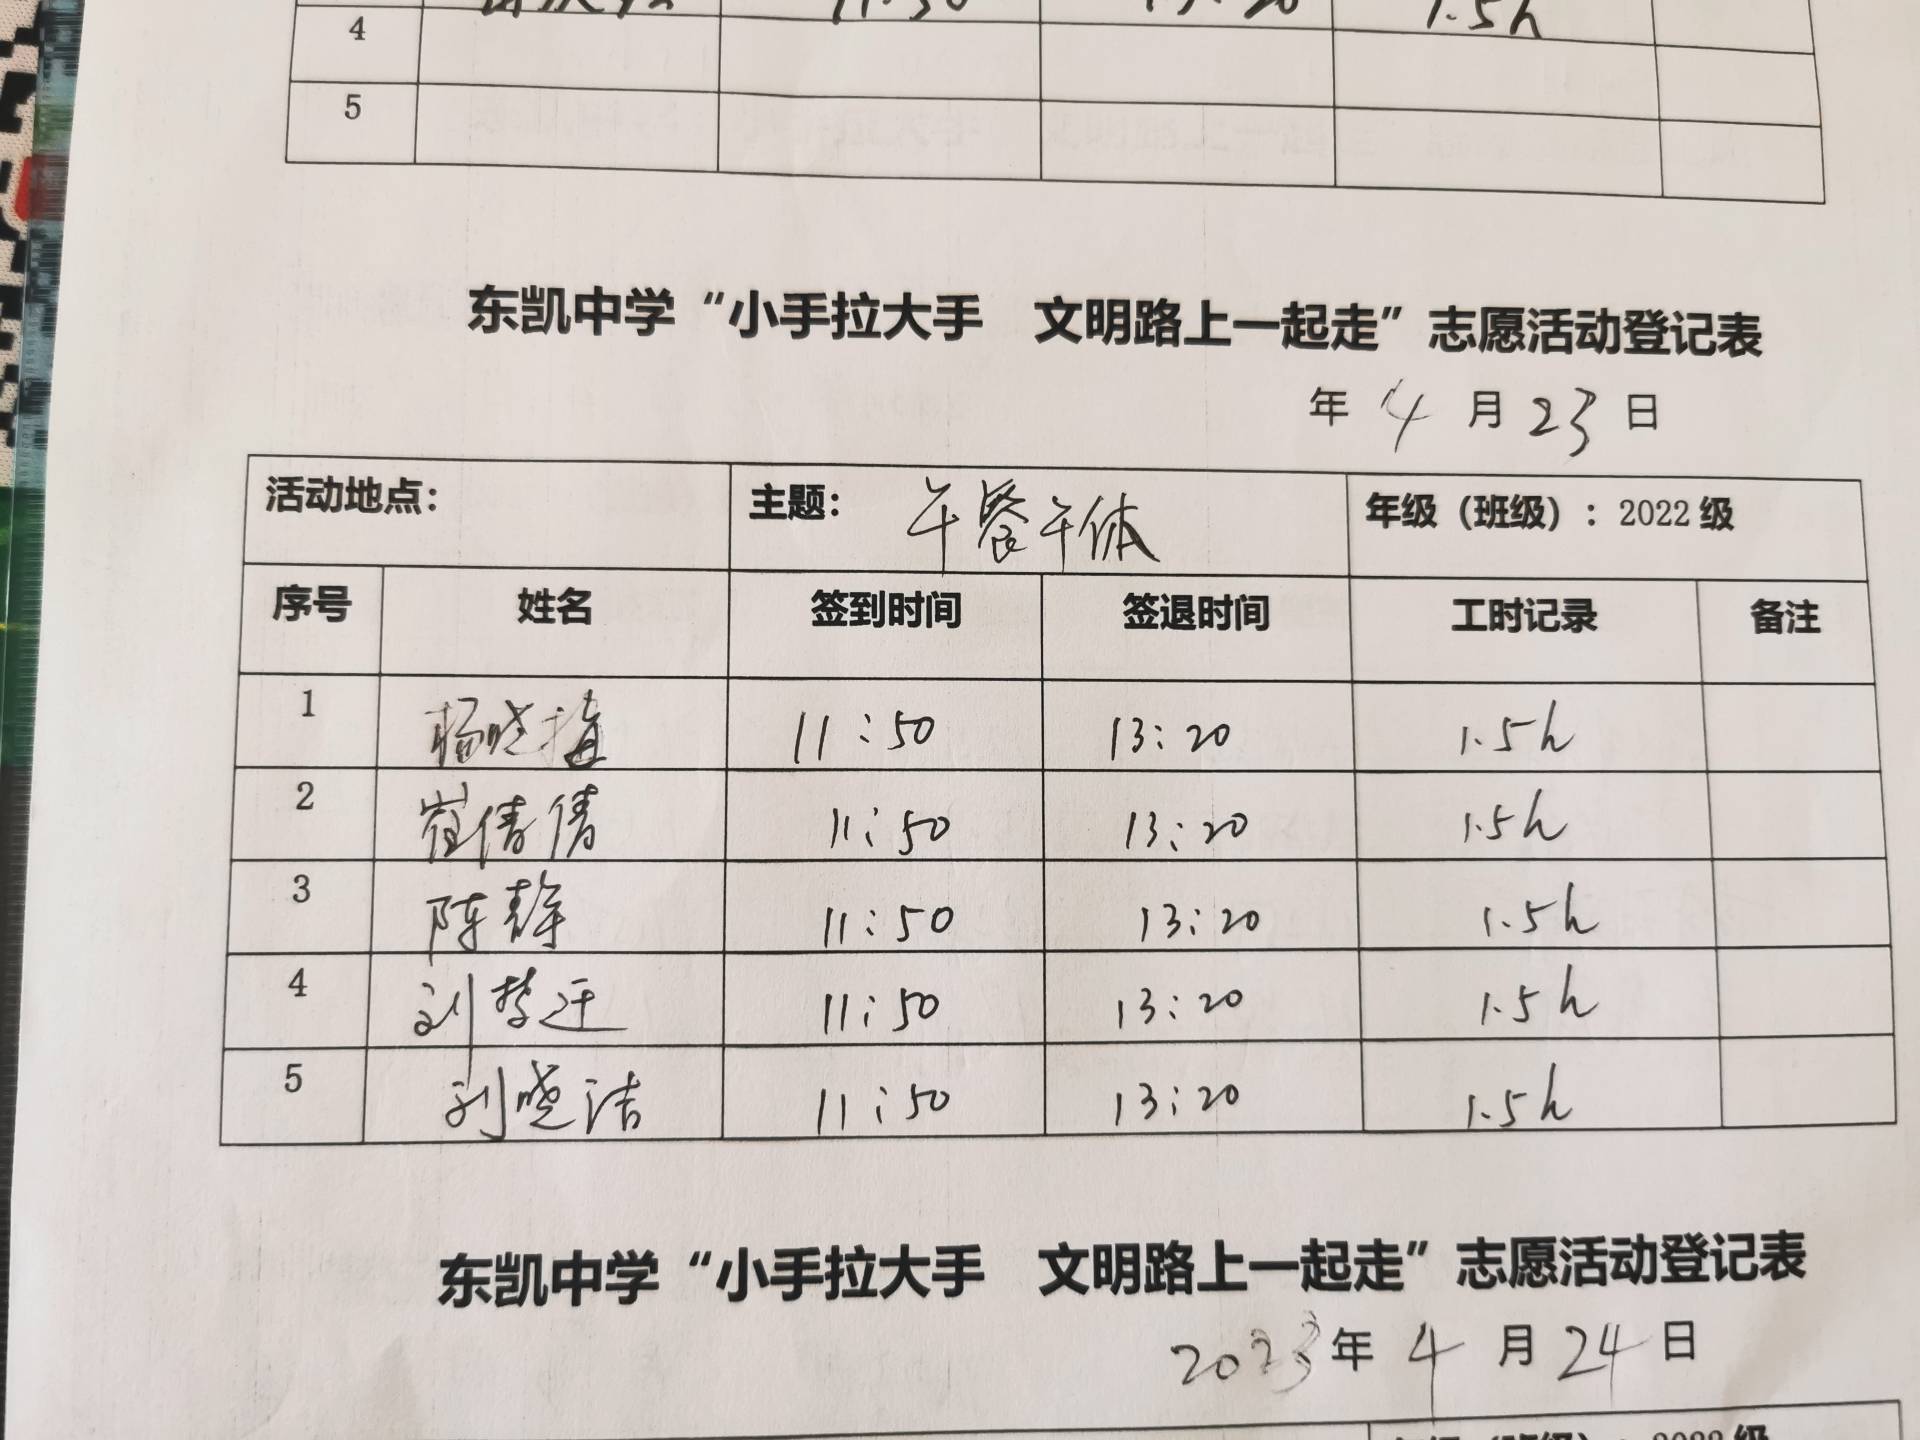 11:50 13:20 1.5h
4
5
东凯中学“小手拉大手 文明路上一起走”志愿活动登记表
年 4 月 23 日
活动地点： 主题： 午餐午休 年级（班级）：2022级
序号 姓名 签到时间 签退时间 工时记录 备注
1 杨晓梅 11:50 13:20 1.5h
2 崔倩倩 11:50 13:20 1.5h
3 陈静 11:50 13:20 1.5h
4 刘梦迁 11:50 13:20 1.5h
5 刘晓洁 11:50 13:20 1.5h
东凯中学“小手拉大手 文明路上一起走”志愿活动登记表
2023年 4 月 24 日
年级（班级）：2022级